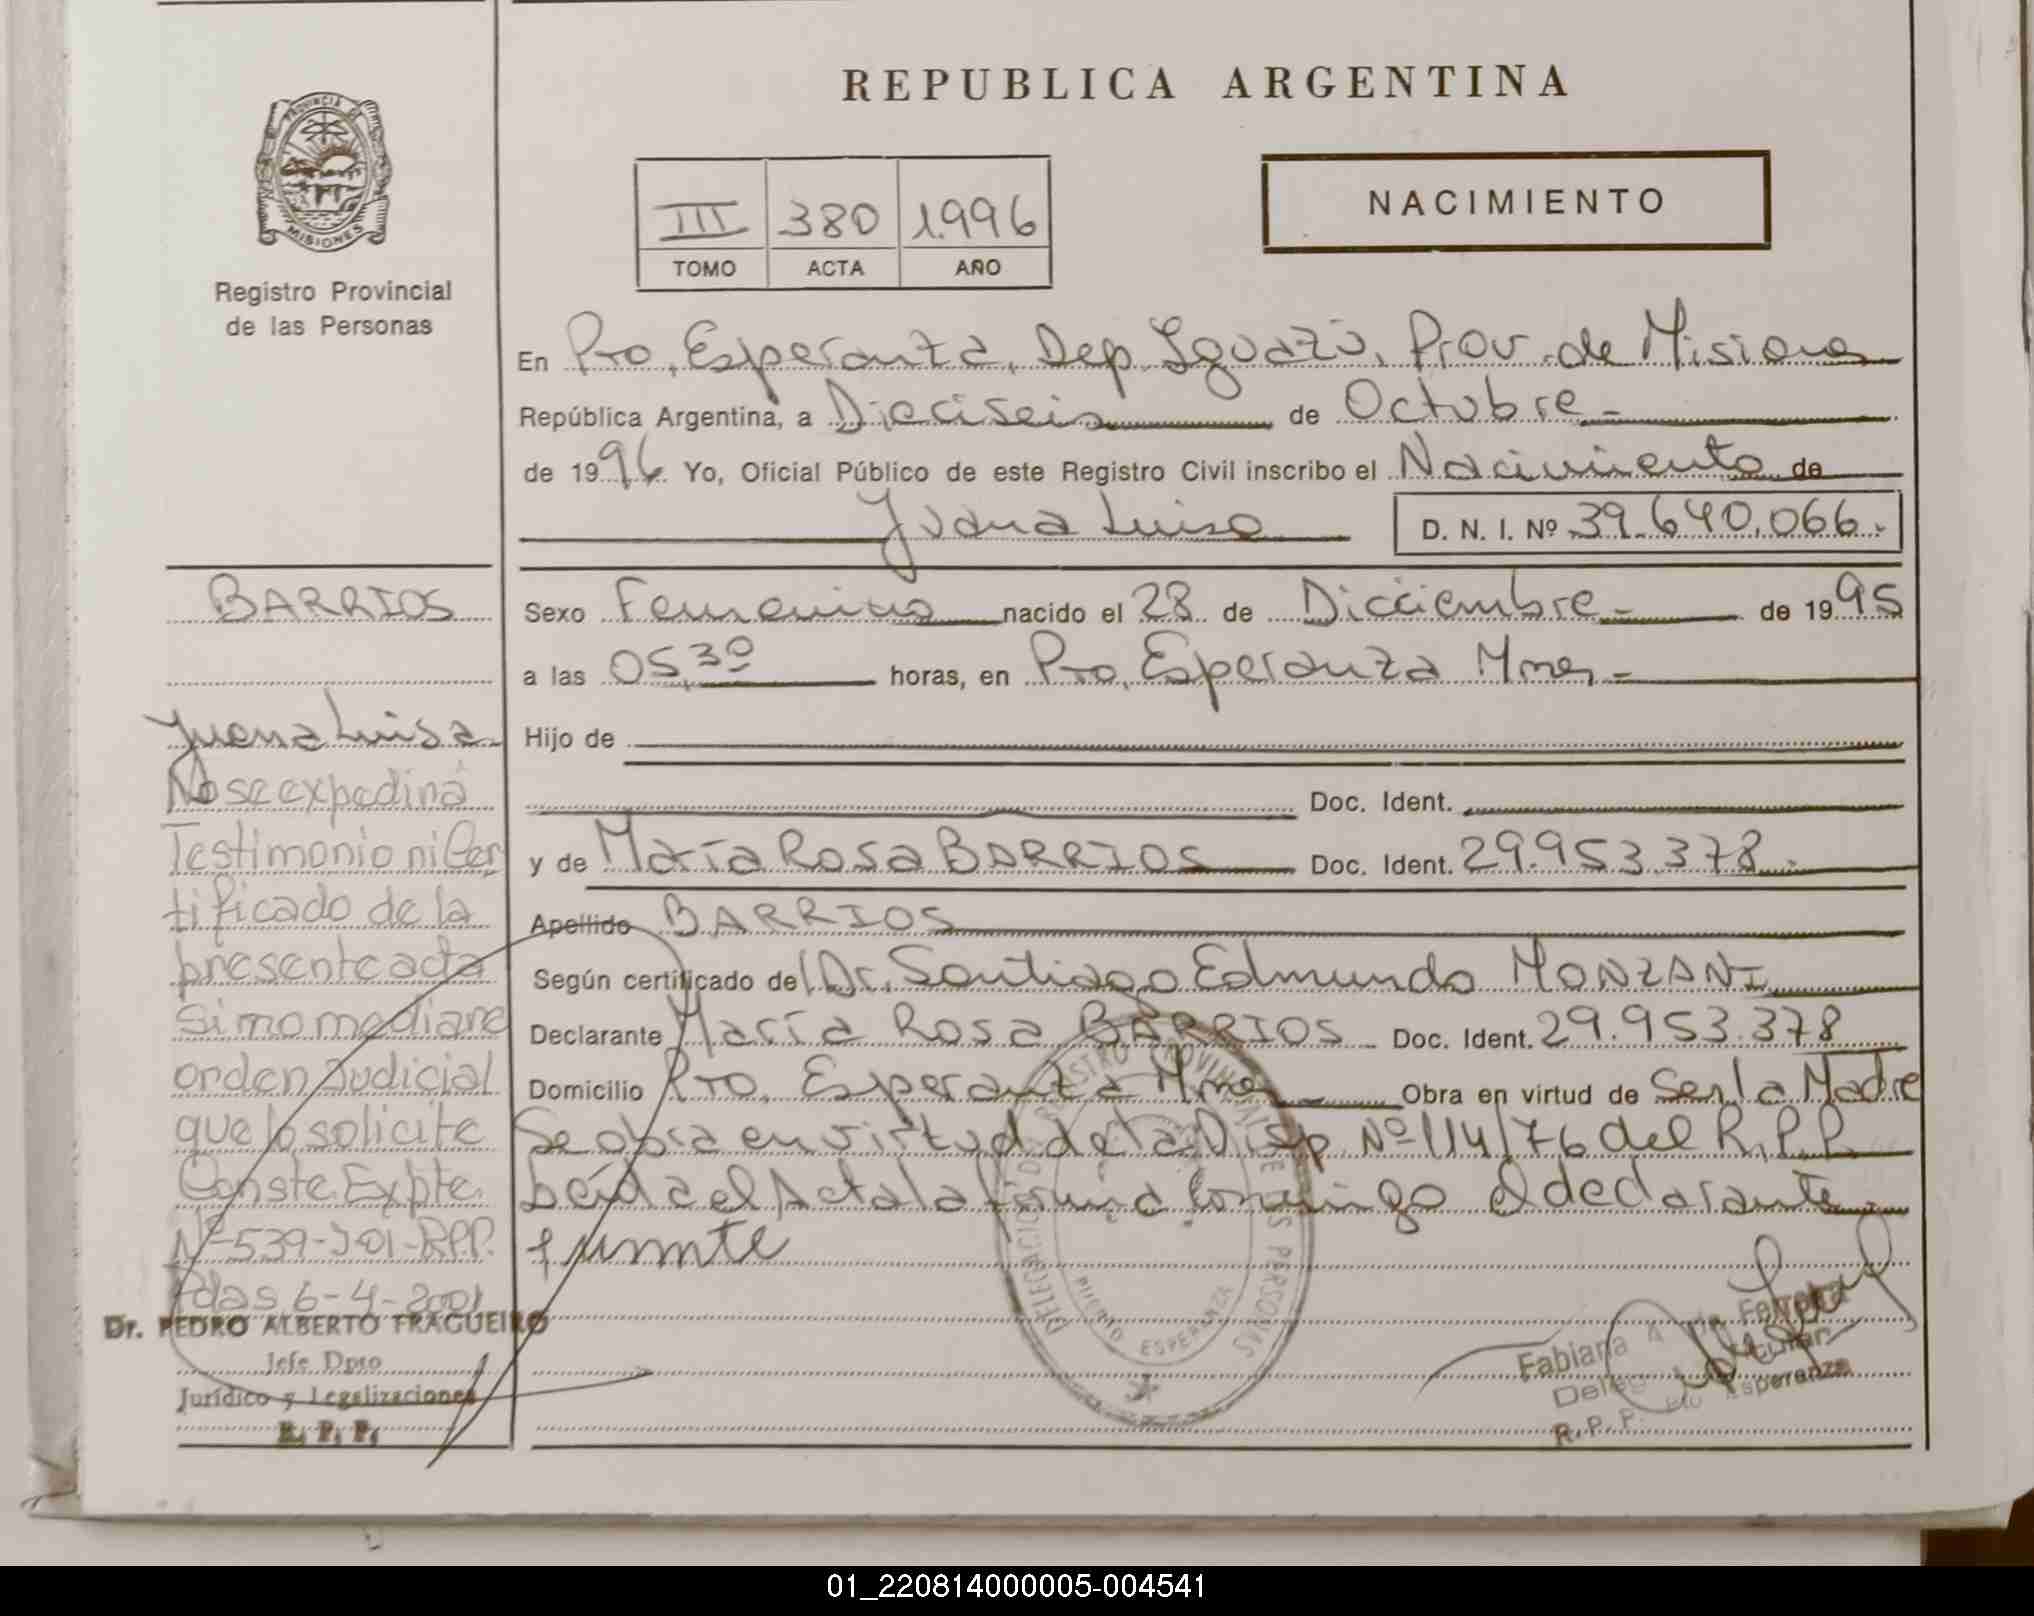 REPUBLICA ARGENTINA
PROVINCIA DE
MISIONES
Registro Provincial
de las Personas
III 380 1.996
TOMO ACTA AÑO
NACIMIENTO
En Pto. Esperanza, Dep. Iguazú, Prov. de Misiones
República Argentina, a Dieciseis de Octubre
de 1996 Yo, Oficial Público de este Registro Civil inscribo el Nacimiento de
Juana Luisa D. N. I. Nº 39.640.066.
Sexo Femenino nacido el 28 de Diciembre de 1995
a las 05,30 horas, en Pto. Esperanza Mnes
Hijo de
Doc. Ident.
y de María Rosa BARRIOS Doc. Ident. 29.953.378.
Apellido BARRIOS
Según certificado del Dr. Santiago Edmundo MONZANI
Declarante María Rosa BARRIOS Doc. Ident. 29.953.378
Domicilio Pto. Esperanza Mnes Obra en virtud de Ser la Madre
Se obra en virtud de la Disp. Nº 114/76 del R.P.P.
Leída el Acta la firma conmigo el declarante
BARRIOS
Juana Luisa
No se expedirá
Testimonio ni Cer
tificado de la
presente acta
Si no mediare
orden Judicial
que lo solicite
Conste. Expte.
Nº 539- -RPP.
Pdas 6-4-2001
Dr. PEDRO ALBERTO FRAGUEIRO
Jefe Dpto
Jurídico y Legalizaciones
R. P. P.
DELEGACION DEL REGISTRO PROVINCIAL DE LAS PERSONAS
PUERTO ESPERANZA
Fabiana A. de Ferreira
Titular
Esperanza
R. P. P.
01_220814000005-004541